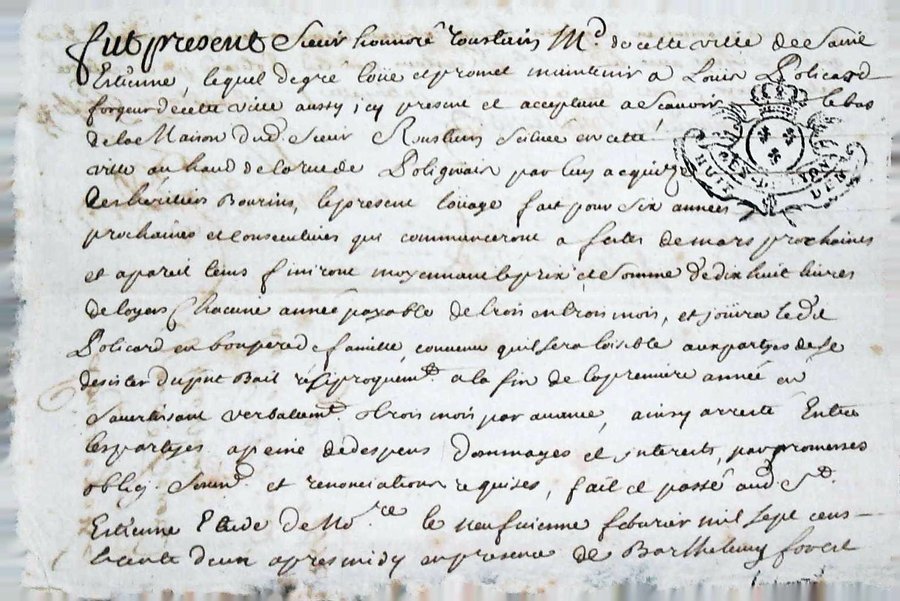 fut present Sieur honnoré roustain Md de cette ville de Saint
Estienne, lequel de gré loüe et promet maintenir a Loüis Policard
forgeur de cette ville aussy icy present et acceptant a Scavoir le bas
de la Maison dud. Sieur Roustain Scituée en cette
ville au haud de la rue de Polignais par luy acquize
des héritiers Bourins, le present loüage fait pour Six années
prochaines et consecutives qui commanceront a festes de mars prochaines
et a pareil tems finiront moyennant le prix et Somme de dix huit livres
de loyers Chacune année payable de trois en trois mois, et joüira led.
Policard en bon pere de famille, convenu quil sera loisible aux partyes de se
desister du pnt Bail résiproquemt. a la fin de la premiere année en
Savertissant verballemt. trois mois par avance, ainsy arresté Entre
les partyes a peine de despens dommages et interests, par promesses
oblig. Soum. et renonciations requises, fait et passé aud St.
Estienne Etude de No.re le neufvieme febvrier mil sept cens
trente deux apres midy en presence de Barthelemy forest
HUIT DEN
GEN. DE LYON